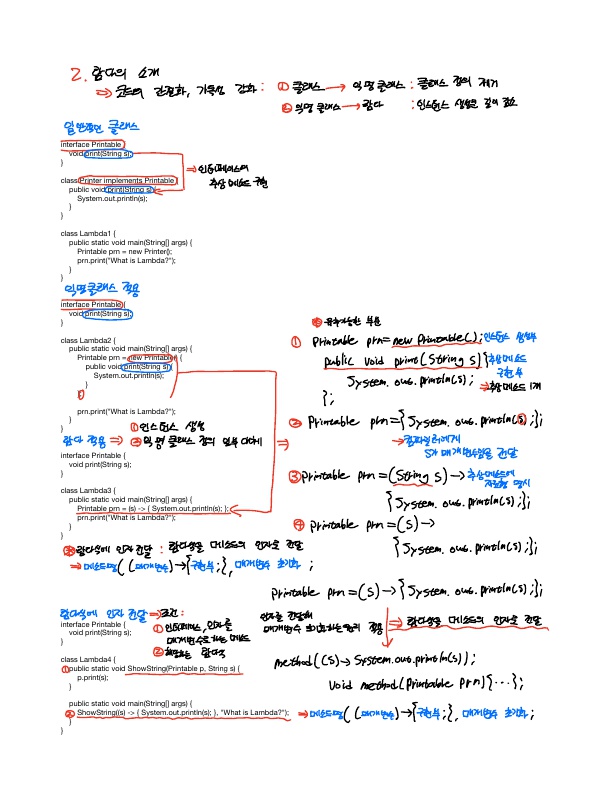 2. 람다의 소개
⇒ 코드의 간결화, 가독성 강화 : ① 클래스 → 익명 클래스 : 클래스 정의 제거
② 익명 클래스 → 람다 : 인스턴스 생성문 길이 감소
일반적인 클래스
interface Printable {
void print(String s);
}
⇒ 인터페이스의
추상 메소드 구현
class Printer implements Printable {
public void print(String s) {
System.out.println(s);
}
}
class Lambda1 {
public static void main(String[] args) {
Printable prn = new Printer();
prn.print("What is Lambda?");
}
}
익명클래스 적용
interface Printable {
void print(String s);
}
class Lambda2 {
public static void main(String[] args) {
Printable prn = new Printable() {
public void print(String s) {
System.out.println(s);
}
}
prn.print("What is Lambda?");
}
}
① 인스턴스 생성
② 익명 클래스 정의 일부 대체
람다 적용 ⇒
interface Printable {
void print(String s);
}
class Lambda3 {
public static void main(String[] args) {
Printable prn = (s) -> { System.out.println(s); };
prn.print("What is Lambda?");
}
}
※ 유추가능한 부분
① Printable prn = new Printable(); 인스턴스 생성부
public void print(String s) { 추상메소드 구현부
System.out.println(s); ⇒ 추상메소드 1개
};
② Printable prn = {System.out.println(s);};
→ 컴파일러에게
S가 매개변수임을 전달
③ Printable prn = (String s) → 추상메소드에
자료형 명시
{System.out.println(s);};
④ Printable prn = (s) →
{System.out.println(s);};
※ 람다식에 인자 전달 : 람다식을 메소드의 인자로 전달
⇒ 메소드명( (매개변수) → {구현부;}, 매개변수 초기화 ;
Printable prn = (s) → {System.out.println(s);};
람다식에 인자 전달 ⇒ 조건:
① 인터페이스, 인자를
매개변수로하는 메소드
② 람다식
interface Printable {
void print(String s);
}
인자를 전달해
매개변수 초기화하는 원리 적용
⇒ 람다식을 메소드의 인자로 전달
class Lambda4 {
① public static void ShowString(Printable p, String s) {
p.print(s);
}
method((s) → System.out.println(s));
void method(Printable prn) {...};
public static void main(String[] args) {
② ShowString((s) -> { System.out.println(s); }, "What is Lambda?");
⇒ 메소드명( (매개변수) → {구현부;}, 매개변수 초기화 ;
}
}